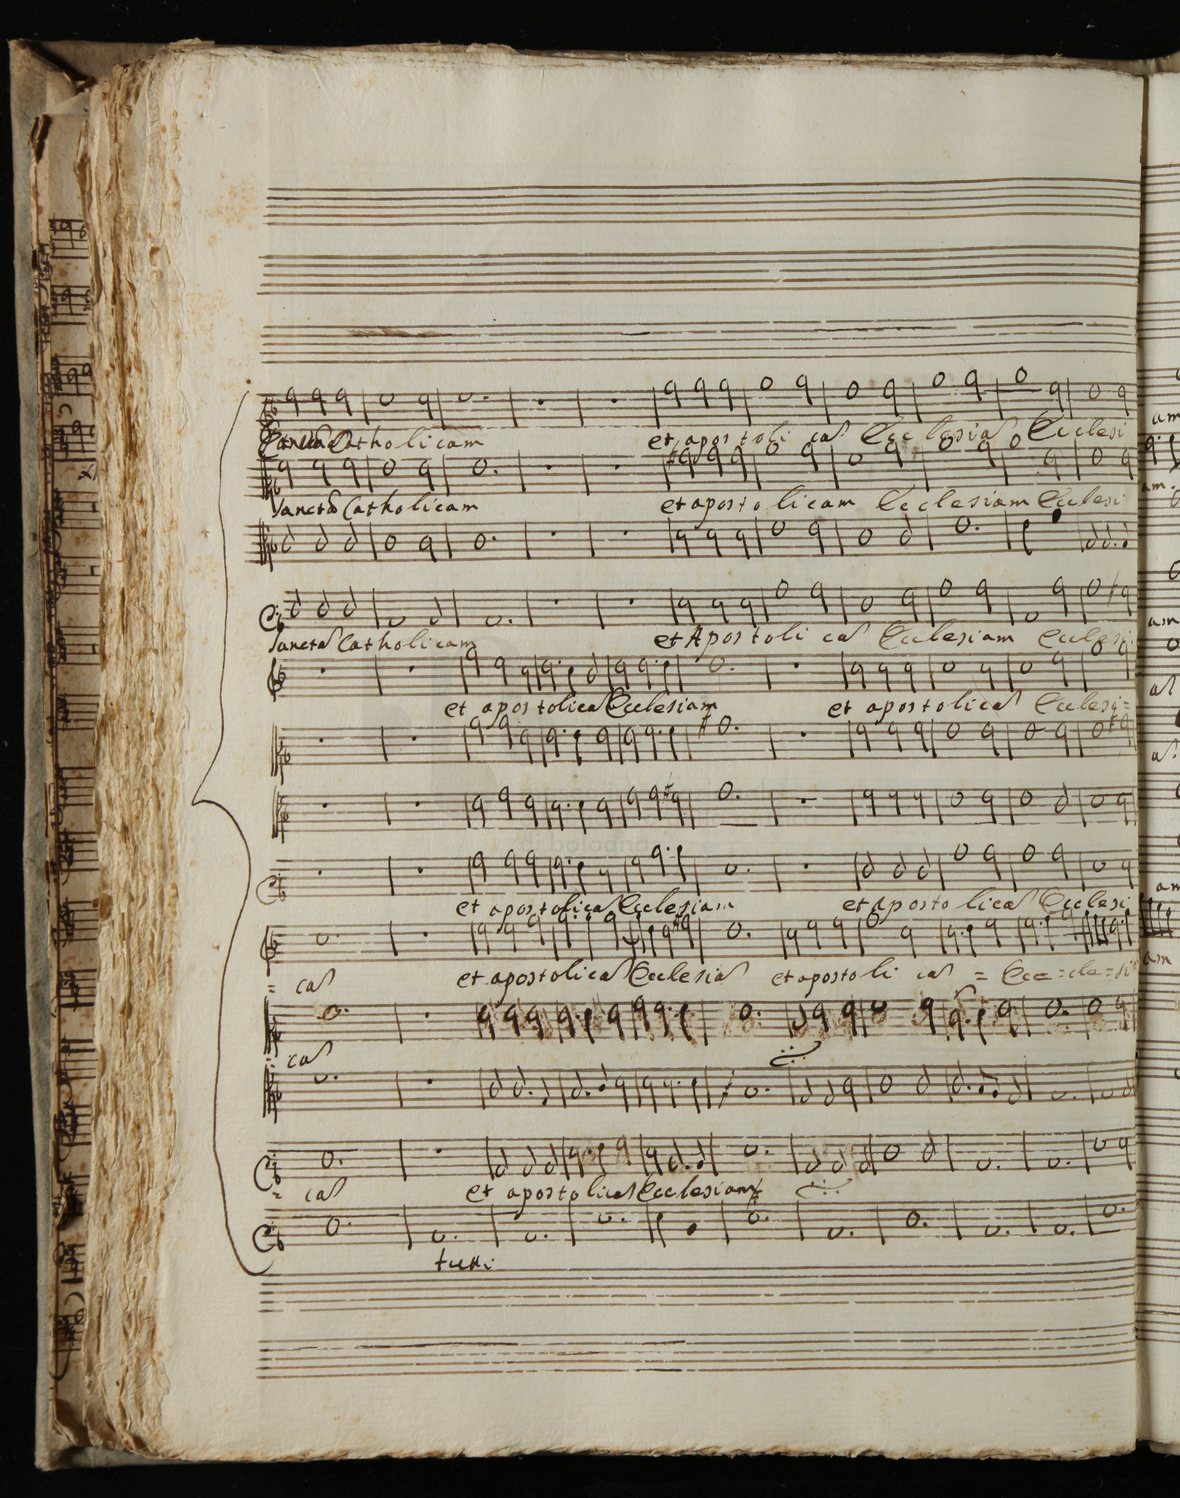 Sanctã Catholicam et apostoli cã Ecclesiã Ecclesi
Sanctã Catholicam et apostolicam Ecclesiam Ecclesi
Sanctã Catholicam et Apostoli cã Ecclesiam Ecclesi
et apostolicã Ecclesiam et apostolicã Ecclesi=
et apostolicã Ecclesiam et aposto licã Ecclesi
= cã et apostolicã Ecclesiã et apostoli cã = Ecc=cle=si
cã
= cã et apostolicã Ecclesiam
tutti